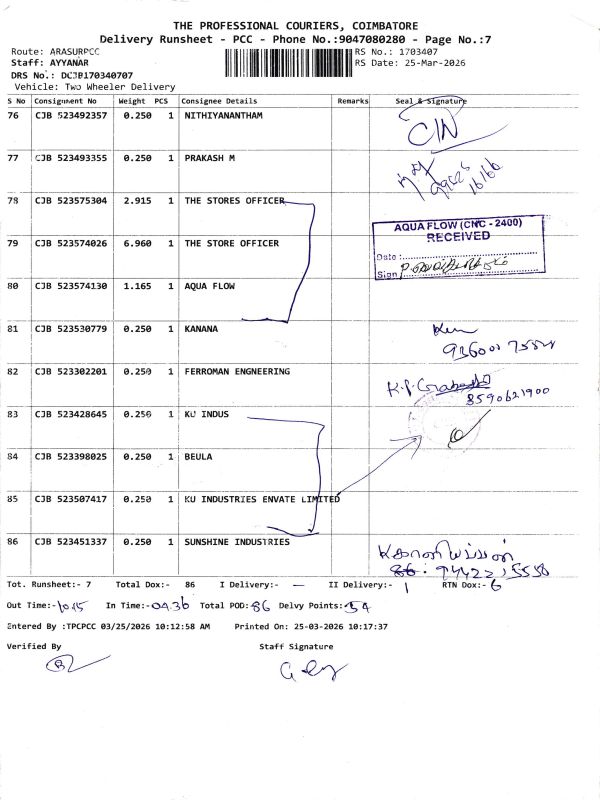 THE PROFESSIONAL COURIERS, COIMBATORE
Delivery Runsheet - PCC - Phone No.:9047080280 - Page No.:7
Route: ARASURPCC
RS No.: 1703407
Staff: AYYANAR
RS Date: 25-Mar-2026
DRS No.: DCJB170340707
Vehicle: Two Wheeler Delivery
S No Consignment No Weight PCS Consignee Details Remarks Seal & Signature
76 CJB 523492357 0.250 1 NITHIYANANTHAM
77 CJB 523493355 0.250 1 PRAKASH M
78 CJB 523575304 2.915 1 THE STORES OFFICER
AQUA FLOW (CNC - 2400)
RECEIVED
79 CJB 523574026 6.960 1 THE STORE OFFICER
Date :
Sign
80 CJB 523574130 1.165 1 AQUA FLOW
81 CJB 523530779 0.250 1 KANANA
82 CJB 523302201 0.250 1 FERROMAN ENGNEERING
8590621900
83 CJB 523428645 0.250 1 KU INDUS
84 CJB 523398025 0.250 1 BEULA
85 CJB 523507417 0.250 1 KU INDUSTRIES ENVATE LIMITED
86 CJB 523451337 0.250 1 SUNSHINE INDUSTRIES
Tot. Runsheet:- 7 Total Dox:- 86 I Delivery:- — II Delivery:- 1 RTN Dox:- 6
Out Time:-10.15 In Time:-04.36 Total POD:-86 Delvy Points:-54
Entered By :TPCPCC 03/25/2026 10:12:58 AM Printed On: 25-03-2026 10:17:37
Verified By Staff Signature